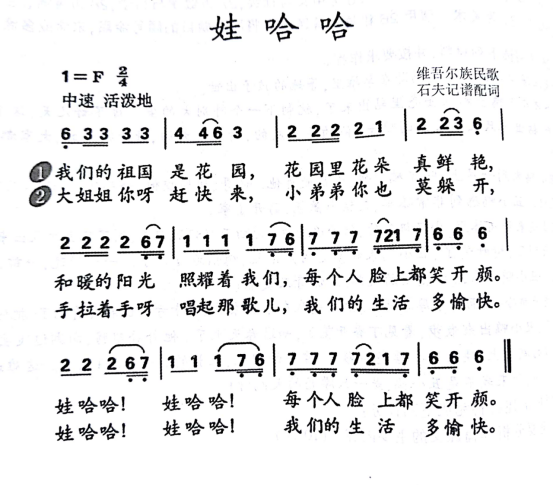 娃哈哈
1=F 2/4
维吾尔族民歌
中速 活泼地
石夫记谱配词
6 33 33 | 4 46 3 | 22 22 21 | 2 23 6 |
① 我们的祖国 是花园， 花园里花朵 真鲜艳，
② 大姐姐你呀 赶快来， 小弟弟你也 莫躲开，
22 2 2 67 | 11 1 1 76 | 77 7 7217 | 66 6 |
和暖的阳光 照耀着我们，每个人脸上都笑开颜。
手拉着手呀 唱起那歌儿，我们的生活 多愉快。
22 267 | 11 176 | 777 7217 | 66 6 ‖
娃哈哈！ 娃哈哈！ 每个人脸上都笑开颜。
娃哈哈！ 娃哈哈！ 我们的生活 多愉快。